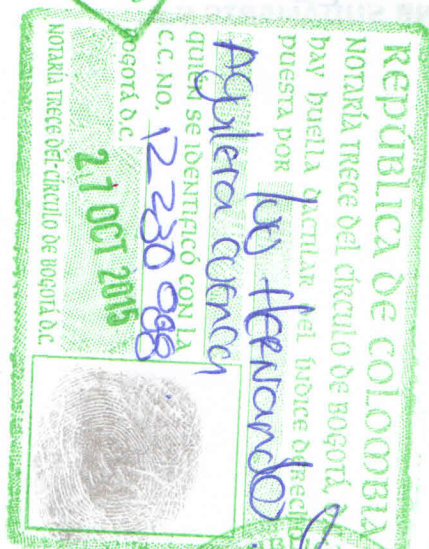 REPÚBLICA DE COLOMBIA
NOTARÍA TRECE DEL CÍRCULO DE BOGOTÁ,
hay huella dactilar del índice derecho
puesta por Luis Hernando
Aguilera Cuenca
quien se identificó con la
C.C. No. 12 230 098
BOGOTÁ D.C.
27 OCT 2015
NOTARÍA TRECE DEL CÍRCULO DE BOGOTÁ D.C.